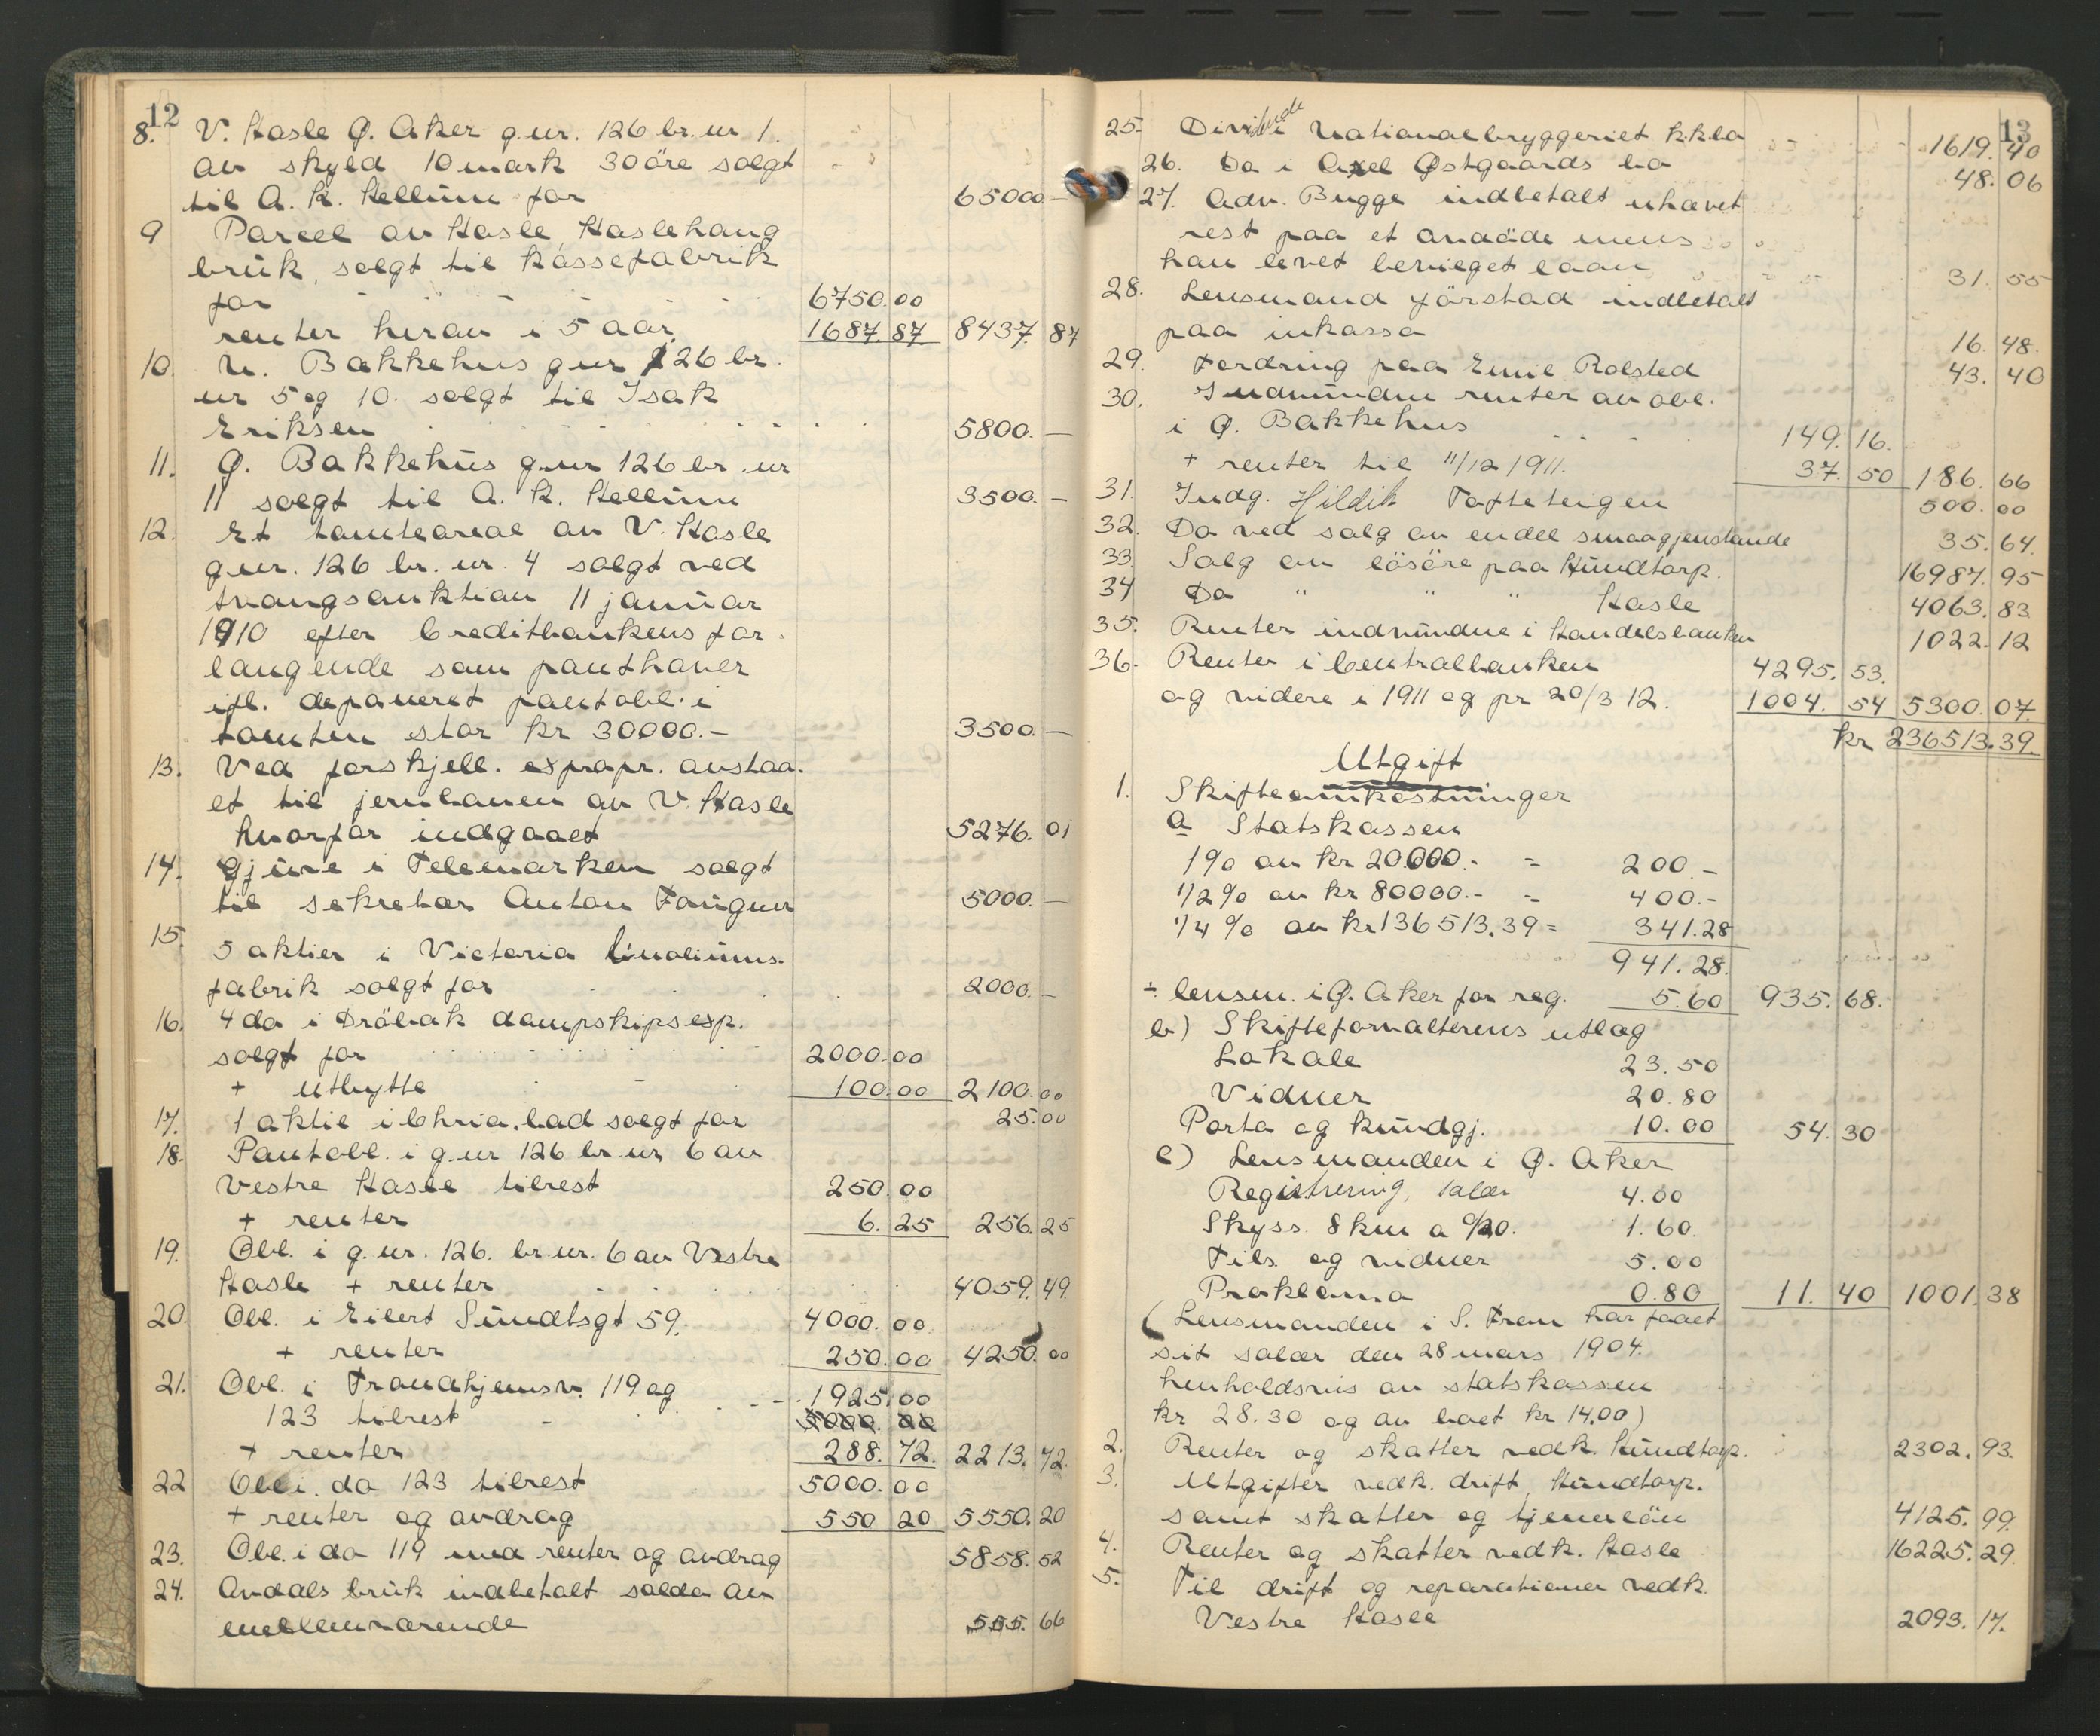 12
8. V. Hasle Ø. Aker g.nr. 126 br. nr 1.
av skyld 10 mark 30 öre solgt
til A. K. Hellum for 65000.-
9 Parcel av Hasle, Haslehaug
bruk, solgt til Kassefabrik
for 6750.00
renter herav i 5 aar 1687.87 8437.87
10. N. Bakkehus g nr 126 br.
nr 5 og 10. solgt til Isak
Eriksen 5800.-
11. Ø. Bakkehus g.nr 126 br. nr
11 solgt til A. K. Hellum 3500.-
12. Et tomteareal av V. Hasle
g.nr. 126 br. nr. 4 solgt ved
tvangsauktion 11 januar
1910 efter Creditbankens for-
langende som panthaver
ifl. deponeret pantobl. i
tomten stor kr 30000.- 3500.-
13. Ved forskjell. expropr. avstaa-
et til jernbanen av V. Hasle
hvorfor indgaaet 5276.01
14. Gjuve i Telemarken solgt
til sekretær Anton Fougner 5000.-
15. 5 aktier i Victoria Linoliums-
fabrik solgt for 2000.-
16. 4 do i Dröbak dampskipsexp.
solgt for 2000.00
+ utbytte 100.00 2100.00
17. 1 aktie i Chria. bad solgt for 25.00
18. Pantobl. i g.nr 126 br. nr 6 av
Vestre Hasle tilrest 250.00
+ renter 6.25 256.25
19. Obl. i g.nr. 126. br. nr. 6 av Vestre
Hasle + renter 4059.49
20. Obl. i Eilert Sundtsgt 59. 4000.00
+ renter 250.00 4250.00
21. Obl. i Trondhjemsv. 119 og 1925.00
123 tilrest 5000.00
+ renter 288.72. 2213.72.
22 Obl i. do 123 tilrest 5000.00
+ renter og avdrag 550 20 5550.20
23. Obl. i do 119 med renter og avdrag 5858.52
24. Andals bruk indbetalt saldo av
mellemværende 555.66
13
25. Dividende Nationalbryggeriet k.kla 1619.40
26. Do i Axel Østgaards bo 48.06
27. Adv. Bugge indbetalt uhævet
rest paa et avdöde mens
han levet bevilget laan 31.55
28. Lensmand Jörstad indbetalt
paa inkasso 16.48.
29. Fordring paa Emil Rolsted 43.40
30. Indvundne renter av obl.
i Ø. Bakkehus 149.16.
+ renter til 11/12 1911. 37.50 186.66
31. Indg. Hildik Tofteteigen 500.00
32. Do ved salg av endel smaagjenstande 35.64.
33. Salg av lösöre paa Hundtorp. 16987.95
34 Do " " " Hasle 4063.83
35. Renter indvundne i Handelsbanken 1022.12
36. Renter i Centralbanken 4295.53.
og videre i 1911 og pr 20/3 12. 1004.54 5300.07.
kr 236513.39.
Utgift
1. Skifteomkostninger
a Statskassen
1% av kr 20.000.- = 200.-
1/2% av kr 80000.- = 400.-
1/4% av kr 136513.39 = 341.28
941.28.
÷ lensm. i Ø. Aker for reg. 5.60 935.68.
b) Skifteforvalterens utlæg
Lokale 23.50
Vidner 20.80
Porto og kundgj. 10.00 54.30
c) Lensmanden i Ø. Aker
Registrering, salær 4.00
Skyss 8 km a 0/20. 1.60.
Tils. og vidner 5.00
Proklama 0.80 11.40 1001.38
(Lensmanden i S. Fron har faaet
sit salær den 28 mars 1904.
henholdsvis av statskassen
kr 28.30 og av boet kr 14.00)
2. Renter og skatter vedk. Hundtorp. 2302.93.
3. Utgifter vedk. drift, Hundtorp.
samt skatter og tjenerlön 4125.99.
4. Renter og skatter vedk. Hasle 16225.29.
5. Til drift og reparationer vedk.
Vestre Hasle 2093.17.